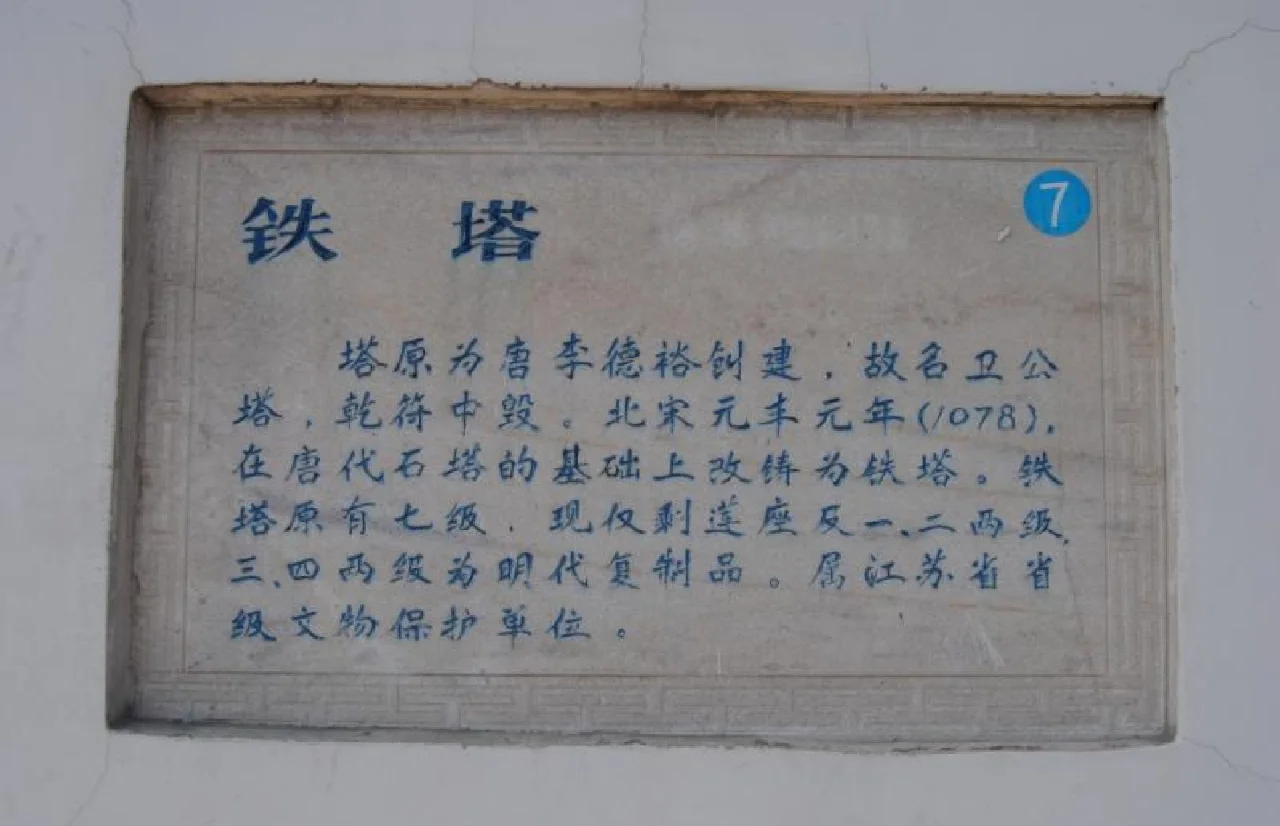 铁 塔
7
塔原为唐李德裕创建，故名卫公
塔，乾符中毁。北宋元丰元年(1078)，
在唐代石塔的基础上改铸为铁塔。铁
塔原有七级，现仅剩莲座及一、二两级，
三、四两级为明代复制品。属江苏省省
级文物保护单位。